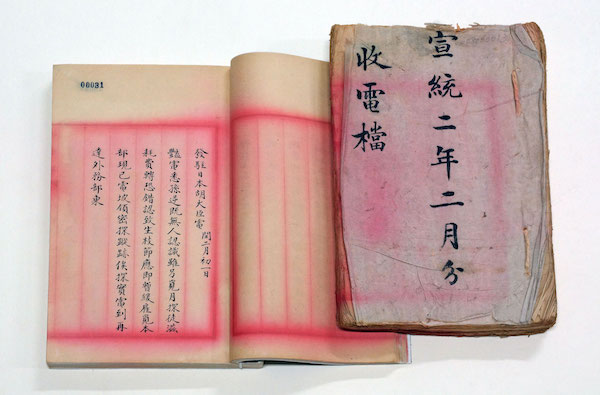 00031
發駐日本胡大臣電 閏二月初一日
豔電悉孫逆既無人認識雖另覓月探徒滋
耗費轉恐錯認致生枝節應即暫緩雇覓本
部現已電坡領密探蹤跡俟探實電到再
達外務部東
宣統二年二月分
收電檔